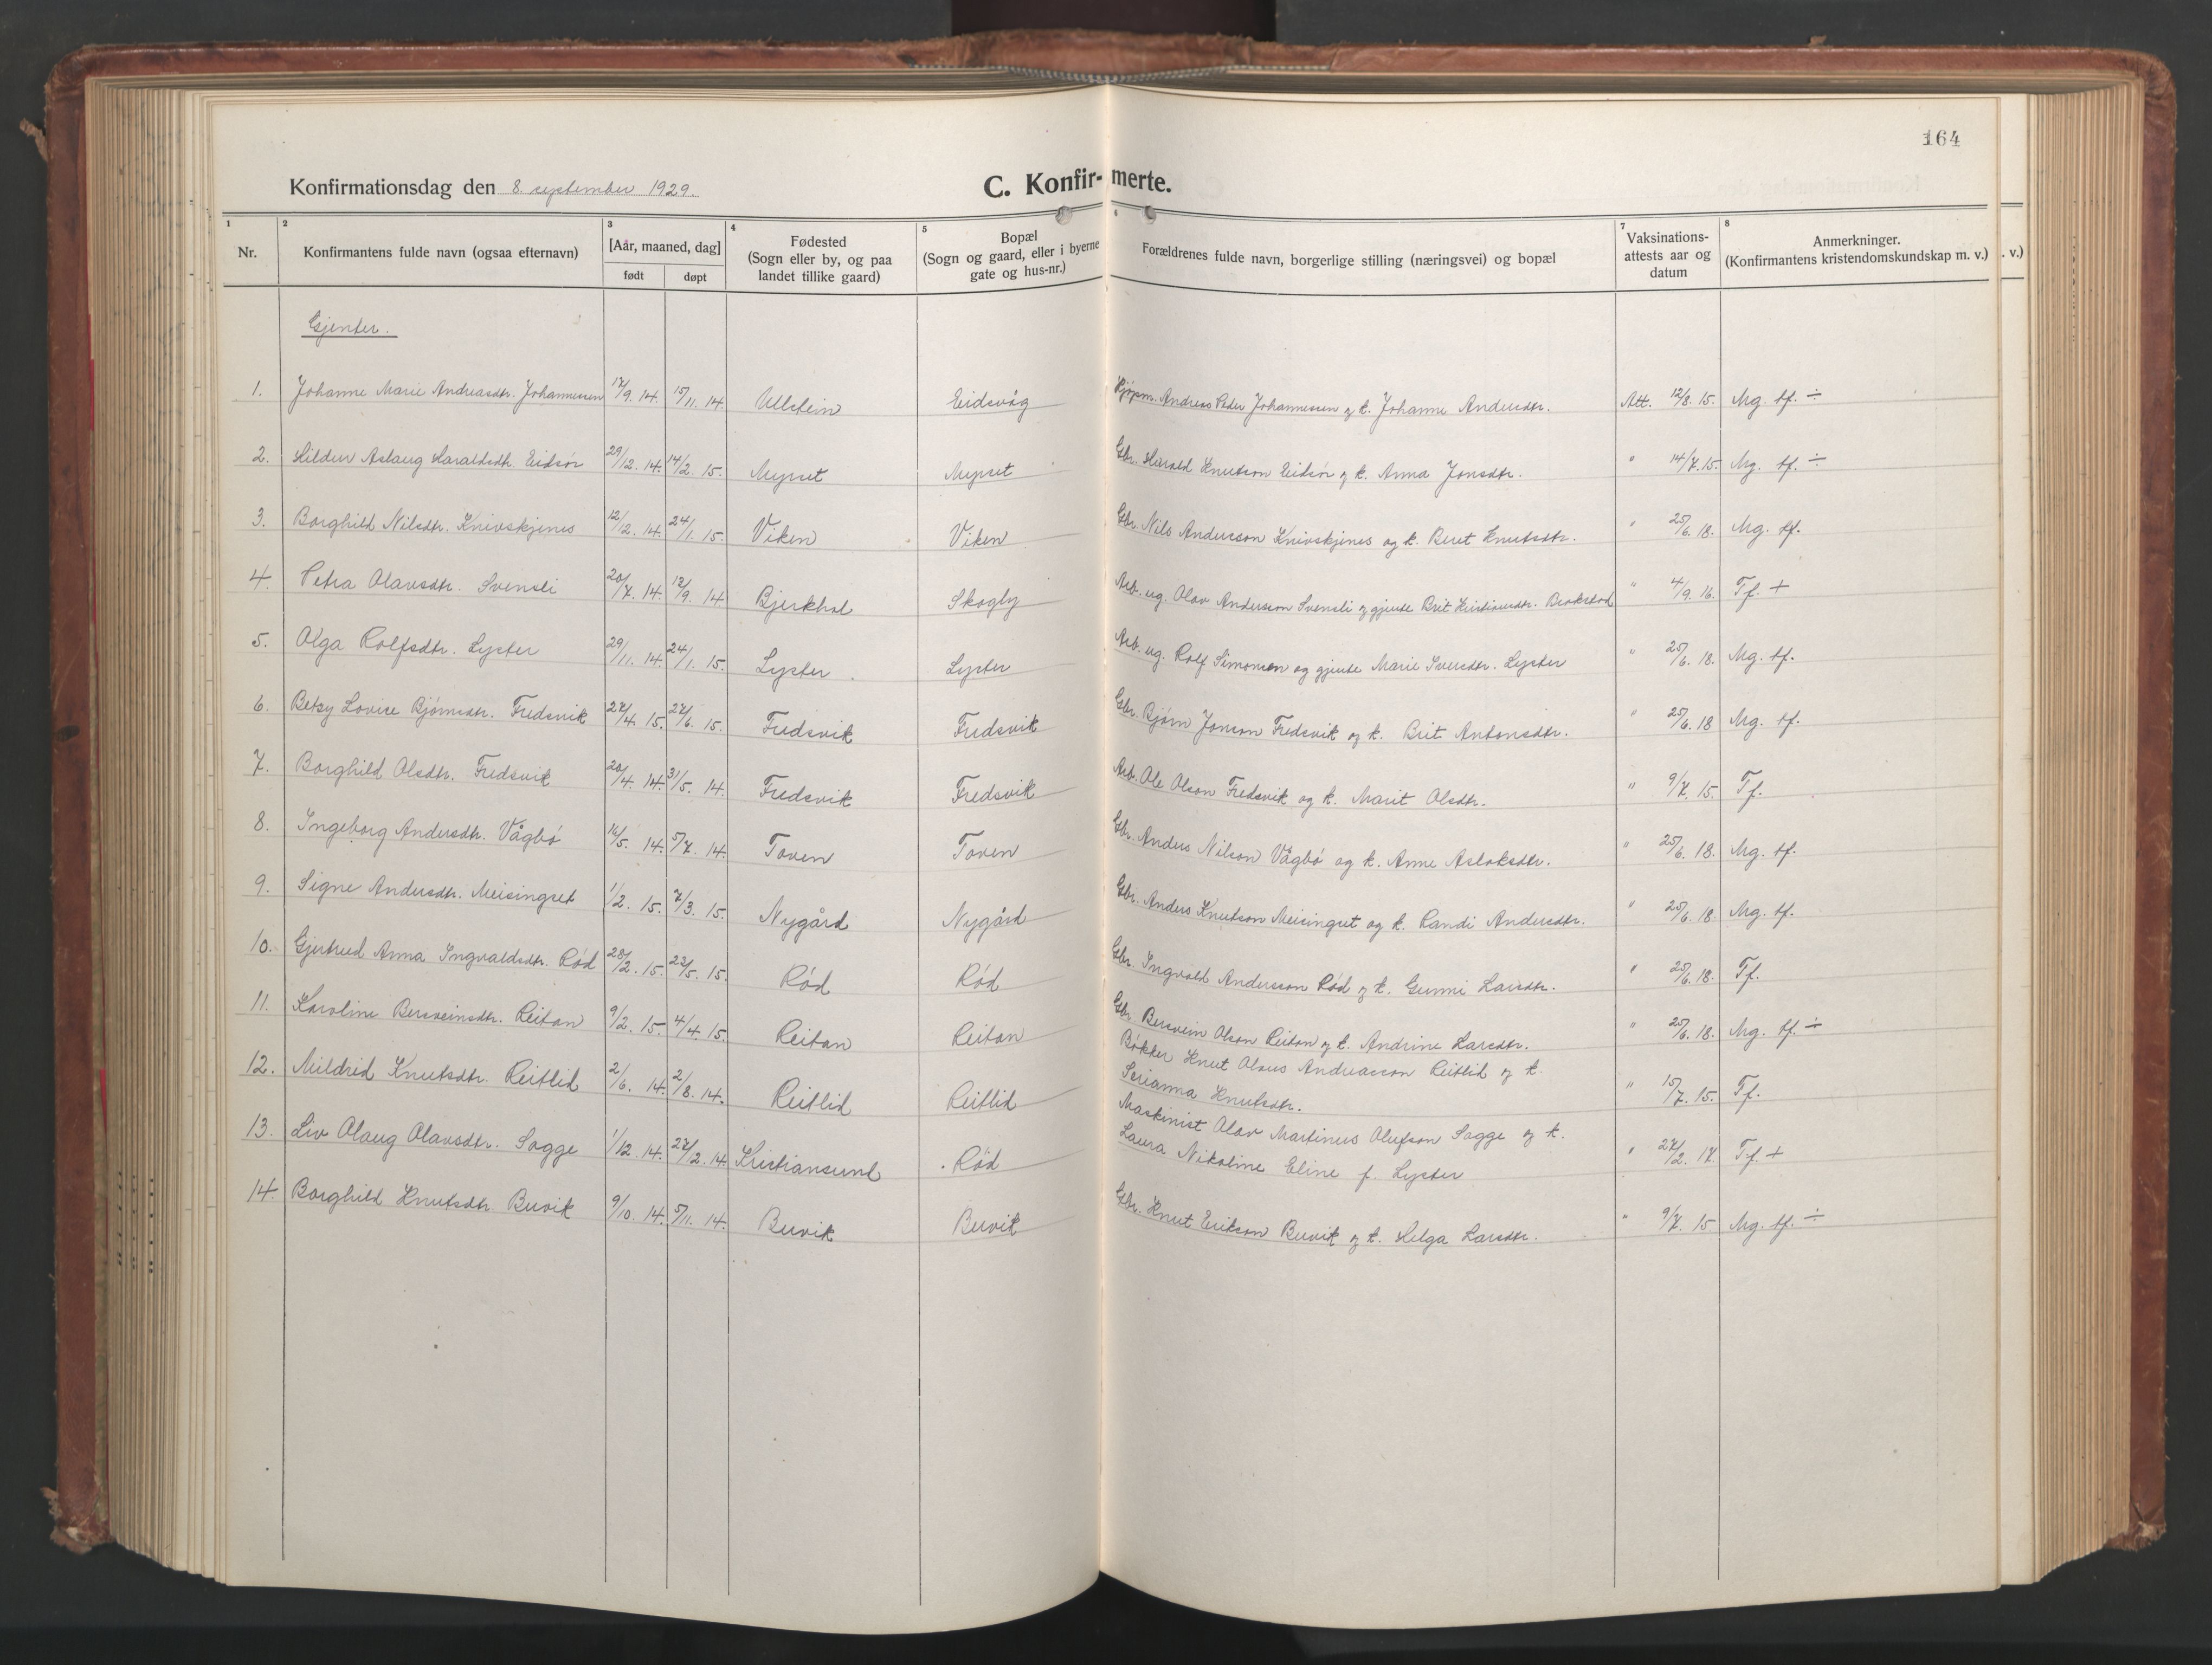 164
Konfirmationsdag den 8. september 1929.
C. Konfir- merte.
1 2 3 4 5 6 7 8
Nr. Konfirmantens fulde navn (ogsaa efternavn) [Aar, maaned, dag] født døpt Fødested (Sogn eller by, og paa landet tillike gaard) Bopæl (Sogn og gaard, eller i byerne gate og hus-nr.) Forældrenes fulde navn, borgerlige stilling (næringsvei) og bopæl Vaksinations-attests aar og datum Anmerkninger. (Konfirmantens kristendomskundskap m. v.) . v.)
Gjenter.
1. Johanne Marie Andreasdtr. Johannessen 17/9. 14. 15/11. 14. Ullstein Eidsvåg Kjøpm. Andreas Peder Johannessen og k. Johanne Andersdtr. Att. 12/8. 15. Mg. tf. ÷
2. Hildur Aslaug Haraldsdtr. Eidsør 29/12. 14. 14/2. 15. Myrset Myrset Gbr. Harald Knutson Eidsør og k. Anna Jonsdtr. " 14/7. 15. Mg. tf. ÷
3. Borghild Nilsdtr. Knivskjenes 12/12. 14. 24/1. 15. Viken Viken Gbr. Nils Andersson Knivskjenes og k. Beret Knutsdtr. " 25/6. 18. Mg. tf.
4. Petra Olavsdtr. Svensli 20/7. 14. 13/9. 14 Bjerkhol Skogly Arb. ug. Olav Andersson Svensli og gjente Brit Kristiansdtr. Brakstad " 4/9. 16. Tf. +
5. Olga Rolfsdtr. Lyster 29/11. 14. 24/1. 15. Lyster Lyster Arb. ug. Rolf Simonsen og gjente Marie Iversdtr. Lyster " 25/6. 18. Mg. tf.
6. Betsy Lovise Bjørnsdtr. Fredsvik 27/4. 15. 27/6. 15. Fredsvik Fredsvik Gbr. Bjørn Jonson Fredsvik og k. Brit Antonsdtr. " 25/6. 18 Mg. tf.
7. Borghild Olsdtr. Fredsvik 20/4. 14. 31/5. 14. Fredsvik Fredsvik Arb. Ole Olson Fredsvik og k. Marit Olsdtr. " 9/7. 15. Tf.
8. Ingeborg Andersdtr. Vågbø 16/5. 14. 5/7. 14. Toven Toven Gbr. Anders Nilson Vågbø og k. Anne Aslaksdtr. " 25/6. 18. Mg. tf.
9. Signe Andersdtr. Meisingset 1/2. 15. 7/3. 15. Nygård Nygård Gbr. Anders Knutson Meisingset og k. Randi Andersdtr. " 25/6. 18. Mg. tf.
10. Gjertrud Anna Ingvaldsdtr. Rød 28/2. 15. 23/5. 15. Rød Rød Gbr. Ingvald Andersson Rød og k. Gunni Larsdtr. " 25/6. 18. Tf.
11. Karoline Bersveinsdtr. Reitan 9/2. 15. 4/4. 15. Reitan Reitan Gbr. Bersvein Olson Reitan og k. Andrine Larsdtr. " 25/6. 18. Mg. tf. ÷
12. Mildrid Knutsdtr. Reitlid 2/6. 14. 2/8. 14. Reitlid Reitlid Bøkker Knut Olaus Andreasson Reitlid og k.
Serianna Knutsdtr. " 15/7. 15. Tf.
13. Liv Olaug Olavsdtr. Sagge 1/12. 14. 27/12. 14. Kristiansund Rød Maskinist Olav Martinus Olufson Sagge og k.
Laura Nikoline Eline f. Lyster " 27/2. 17 Tf. +
14. Borghild Knutsdtr. Buvik 9/10. 14. 5/11. 14. Buvik Buvik Gbr. Knut Erikson Buvik og k. Helga Larsdtr. " 9/7. 15 Mg. tf. ÷